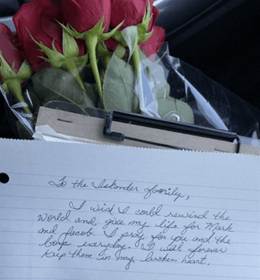 To the Iskander family,
I wish I could rewind the
world and give my life for Mark
and Jacob. I pray for you and the
boys everyday. I will forever
keep them in my broken heart.